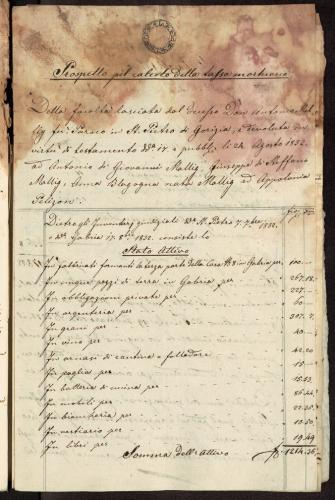 Prospetto pel calcolo della tassa mortuaria
Della facoltà lasciata dal decesso Don Antonio Mal-
lig fu Parroco in St. Pietro di Gorizia, e devoluta in
virtù di testamento 17 e pubbl. li 24 Agosto 1832.
ad Antonio di Giovanni Mallig, Giuseppe di Steffano
Mallig, Anna Blasogna nata Mallig ed Appolonia
Pelizon:
Dietro gli Inventarj giudiziali St. Pietro 7. 7bre 1832.
e Gabria 17. 8bre 1832. consiste lo
Stato Attivo
In fabbricati formanti la terza parte della Casa N 8 in Gabria per 100.
In cinque pezzi di terra in Gabria per 267.18.
In obbligazioni private per 227.
In argenteria per 60.
In grani per 307.7.
In vino per 40.
In arnasi di cantina e follador 42.20
In paglia per 15
In batteria di cucina per
In mobili per 86.44
In biancheria per
In vestiario per 10.50.
In libri per 19.49
Somma dell'Attivo f 1214.36